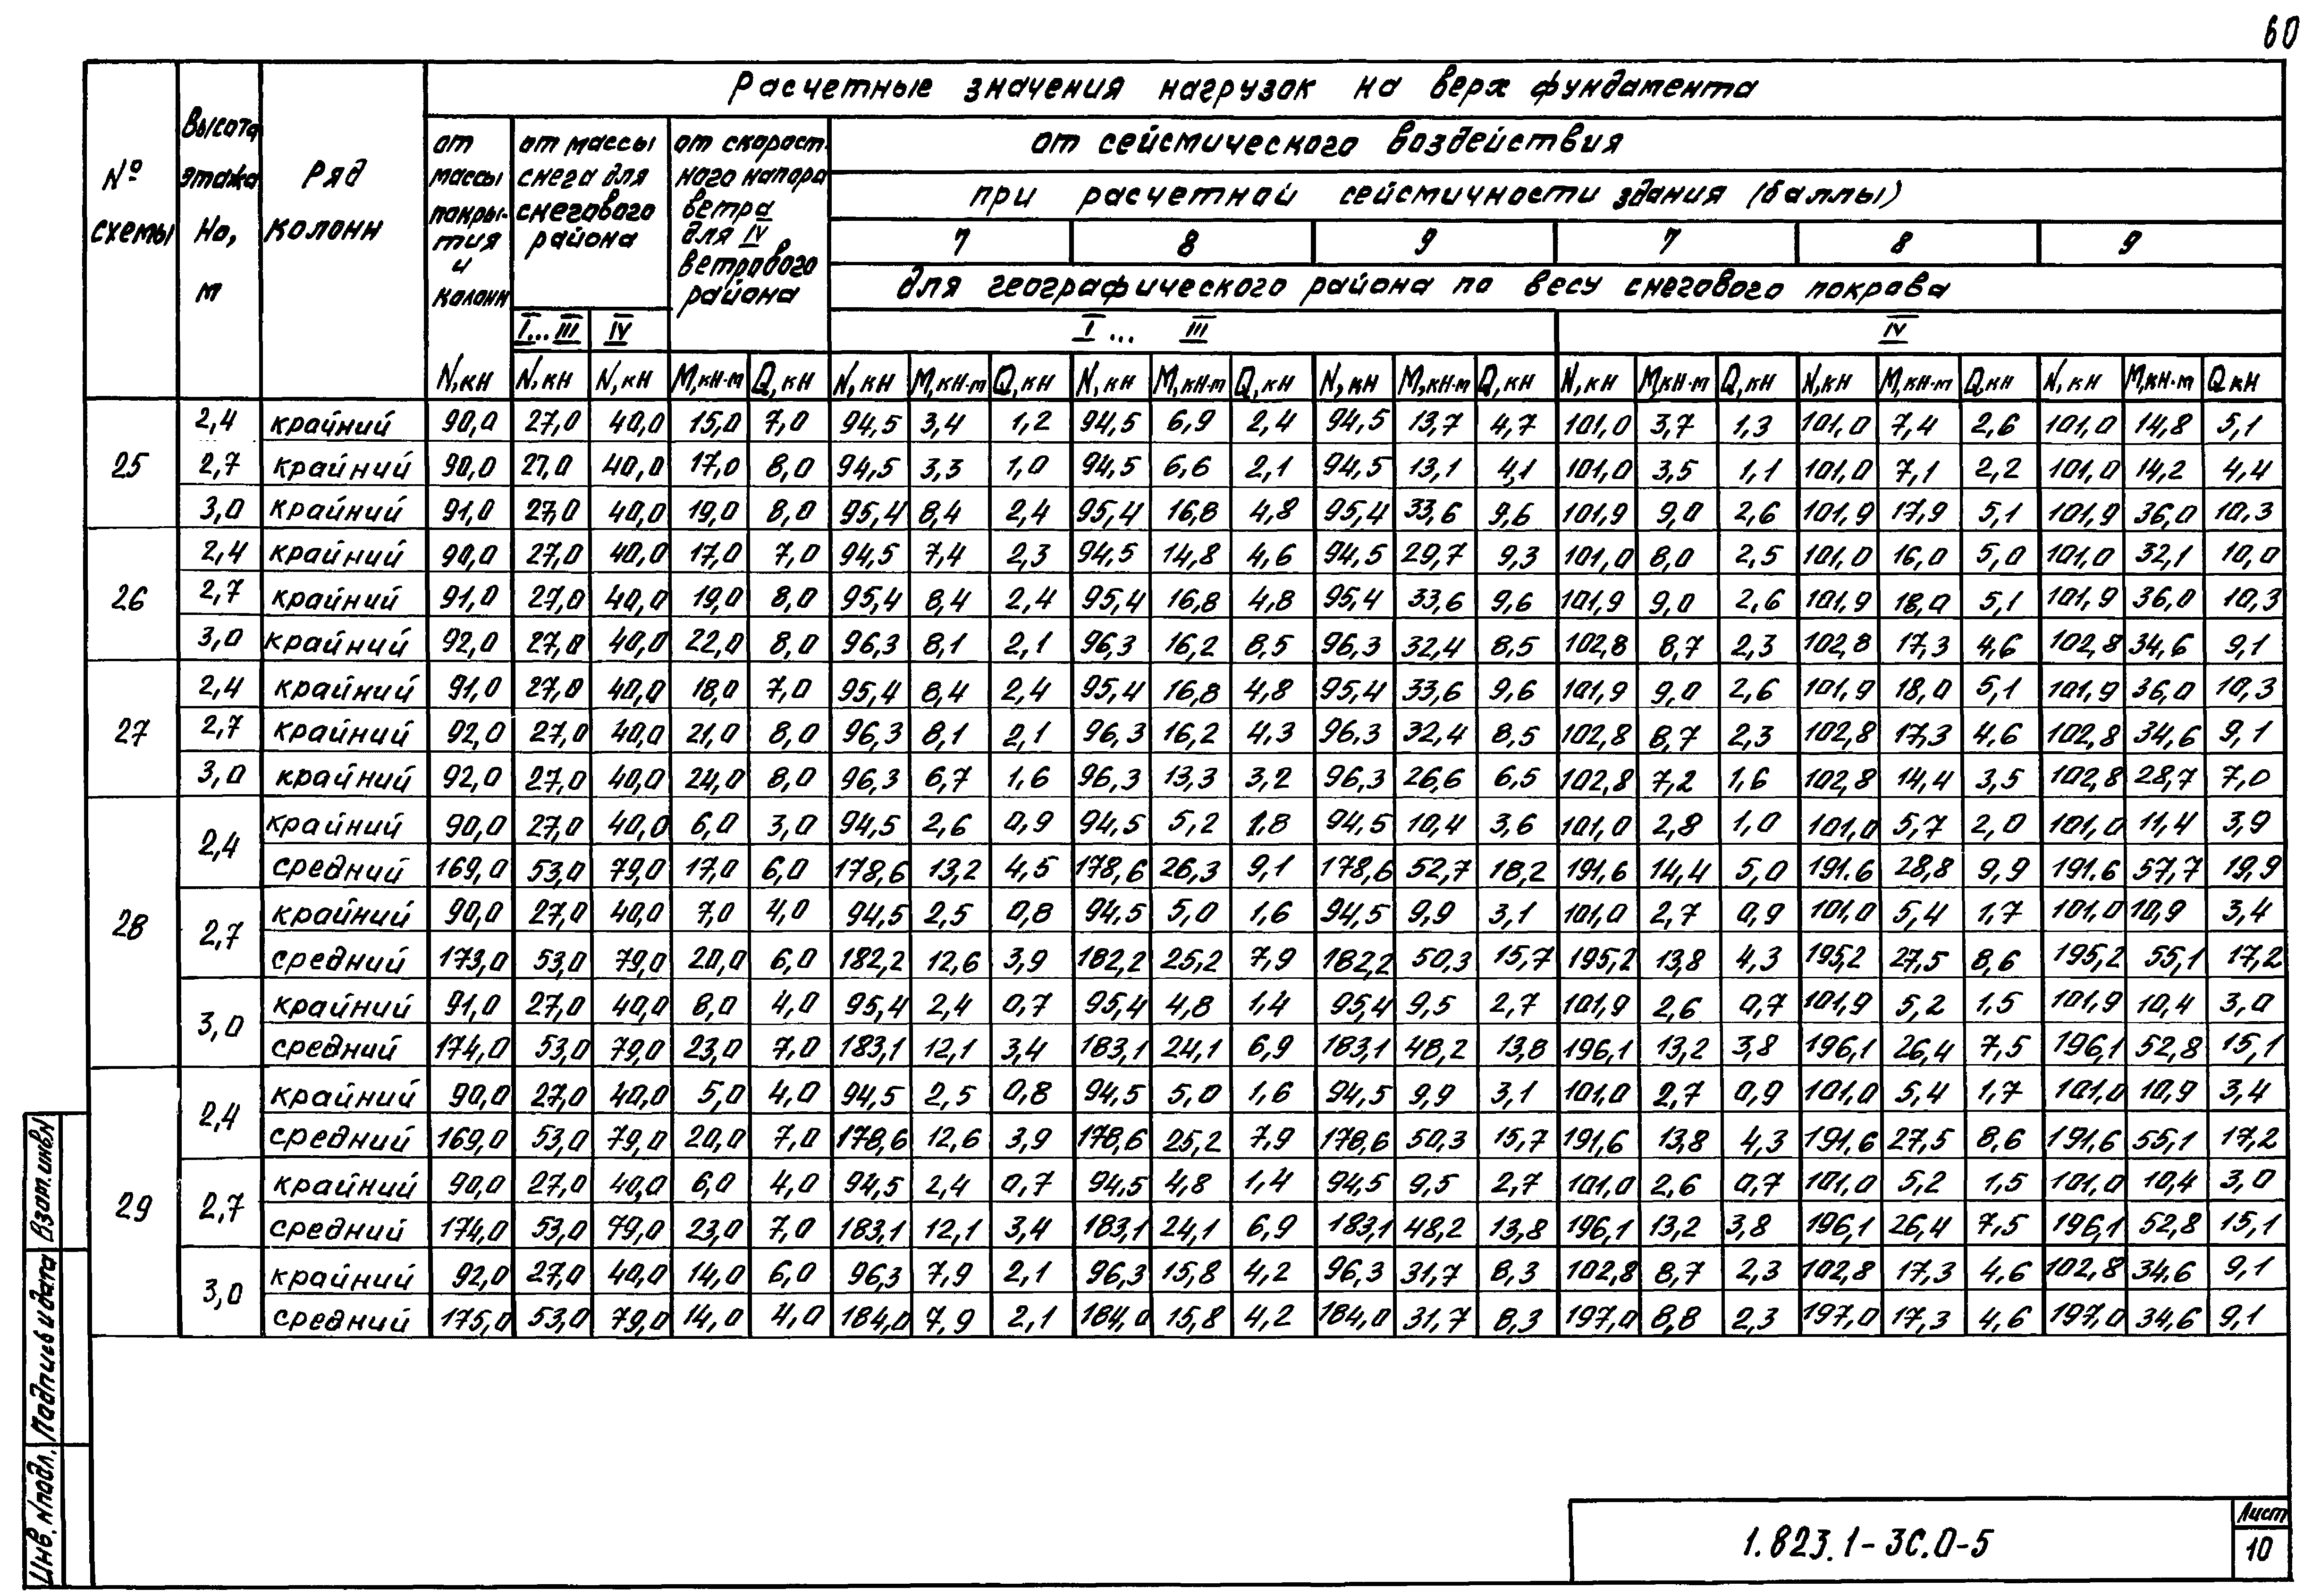 60
Расчетные значения нагрузок на верх фундамента
№ схемы
Высота этажа Но, м
Ряд колонн
от массы покрытия и колонн
от массы снега для снегового района
от скоростного напора ветра для IV ветрового района
от сейсмического воздействия
при расчетной сейсмичности здания (баллы)
7 8 9 7 8 9
для географического района по весу снегового покрова
I...III IV I... III IV
N,кН N,кН N,кН M,кН·м Q,кН N,кН M,кН·м Q,кН N,кН M,кН·м Q,кН N,кН M,кН·м Q,кН N,кН M,кН·м Q,кН N,кН M,кН·м Q,кН N,кН M,кН·м Q кН
25 2,4 крайний 90,0 27,0 40,0 15,0 7,0 94,5 3,4 1,2 94,5 6,9 2,4 94,5 13,7 4,7 101,0 3,7 1,3 101,0 7,4 2,6 101,0 14,8 5,1
2,7 крайний 90,0 27,0 40,0 17,0 8,0 94,5 3,3 1,0 94,5 6,6 2,1 94,5 13,1 4,1 101,0 3,5 1,1 101,0 7,1 2,2 101,0 14,2 4,4
3,0 крайний 91,0 27,0 40,0 19,0 8,0 95,4 8,4 2,4 95,4 16,8 4,8 95,4 33,6 9,6 101,9 9,0 2,6 101,9 17,9 5,1 101,9 36,0 10,3
26 2,4 крайний 90,0 27,0 40,0 17,0 7,0 94,5 7,4 2,3 94,5 14,8 4,6 94,5 29,7 9,3 101,0 8,0 2,5 101,0 16,0 5,0 101,0 32,1 10,0
2,7 крайний 91,0 27,0 40,0 19,0 8,0 95,4 8,4 2,4 95,4 16,8 4,8 95,4 33,6 9,6 101,9 9,0 2,6 101,9 18,0 5,1 101,9 36,0 10,3
3,0 крайний 92,0 27,0 40,0 22,0 8,0 96,3 8,1 2,1 96,3 16,2 8,5 96,3 32,4 8,5 102,8 8,7 2,3 102,8 17,3 4,6 102,8 34,6 9,1
27 2,4 крайний 91,0 27,0 40,0 18,0 7,0 95,4 8,4 2,4 95,4 16,8 4,8 95,4 33,6 9,6 101,9 9,0 2,6 101,9 18,0 5,1 101,9 36,0 10,3
2,7 крайний 92,0 27,0 40,0 21,0 8,0 96,3 8,1 2,1 96,3 16,2 4,3 96,3 32,4 8,5 102,8 8,7 2,3 102,8 17,3 4,6 102,8 34,6 9,1
3,0 крайний 92,0 27,0 40,0 24,0 8,0 96,3 6,7 1,6 96,3 13,3 3,2 96,3 26,6 6,5 102,8 7,2 1,6 102,8 14,4 3,5 102,8 28,7 7,0
28 2,4 крайний 90,0 27,0 40,0 6,0 3,0 94,5 2,6 0,9 94,5 5,2 1.8 94,5 10,4 3,6 101,0 2,8 1,0 101,0 5,7 2,0 101,0 11,4 3,9
средний 169,0 53,0 79,0 17,0 6,0 178,6 13,2 4,5 178,6 26,3 9,1 178,6 52,7 18,2 191,6 14,4 5,0 191.6 28,8 9,9 191.6 57,7 19,9
2,7 крайний 90,0 27,0 40,0 7,0 4,0 94,5 2,5 0,8 94,5 5,0 1,6 94,5 9,9 3,1 101,0 2,7 0,9 101,0 5,4 1,7 101,0 10,9 3,4
средний 173,0 53,0 79,0 20,0 6,0 182,2 12,6 3,9 182,2 25,2 7,9 182,2 50,3 15,7 195,2 13,8 4,3 195,2 27,5 8,6 195,2 55,1 17,2
3,0 крайний 91,0 27,0 40,0 8,0 4,0 95,4 2,4 0,7 95,4 4,8 1,4 95,4 9,5 2,7 101,9 2,6 0,7 101,9 5,2 1,5 101,9 10,4 3,0
средний 174,0 53,0 79,0 23,0 7,0 183,1 12,1 3,4 183,1 24,1 6,9 183,1 48,2 13,8 196,1 13,2 3,8 196,1 26,4 7,5 196,1 52,8 15,1
29 2,4 крайний 90,0 27,0 40,0 5,0 4,0 94,5 2,5 0,8 94,5 5,0 1,6 94,5 9,9 3,1 101,0 2,7 0,9 101,0 5,4 1,7 101,0 10,9 3,4
средний 169,0 53,0 79,0 20,0 7,0 178,6 12,6 3,9 178,6 25,2 7,9 178,6 50,3 15,7 191,6 13,8 4,3 191,6 27,5 8,6 191,6 55,1 17,2
2,7 крайний 90,0 27,0 40,0 6,0 4,0 94,5 2,4 0,7 94,5 4,8 1,4 94,5 9,5 2,7 101,0 2,6 0,7 101,0 5,2 1,5 101,0 10,4 3,0
средний 174,0 53,0 79,0 23,0 7,0 183,1 12,1 3,4 183,1 24,1 6,9 183,1 48,2 13,8 196,1 13,2 3,8 196,1 26,4 7,5 196,1 52,8 15,1
3,0 крайний 92,0 27,0 40,0 14,0 6,0 96,3 7,9 2,1 96,3 15,8 4,2 96,3 31,7 8,3 102,8 8,7 2,3 102,8 17,3 4,6 102,8 34,6 9,1
средний 175,0 53,0 79,0 14,0 4,0 184,0 7,9 2,1 184,0 15,8 4,2 184,0 31,7 8,3 197,0 8,8 2,3 197,0 17,3 4,6 197,0 34,6 9,1
Инв. № подл. Подпись и дата Взам. инв №
1.823.1-3С.0-5
Лист
10